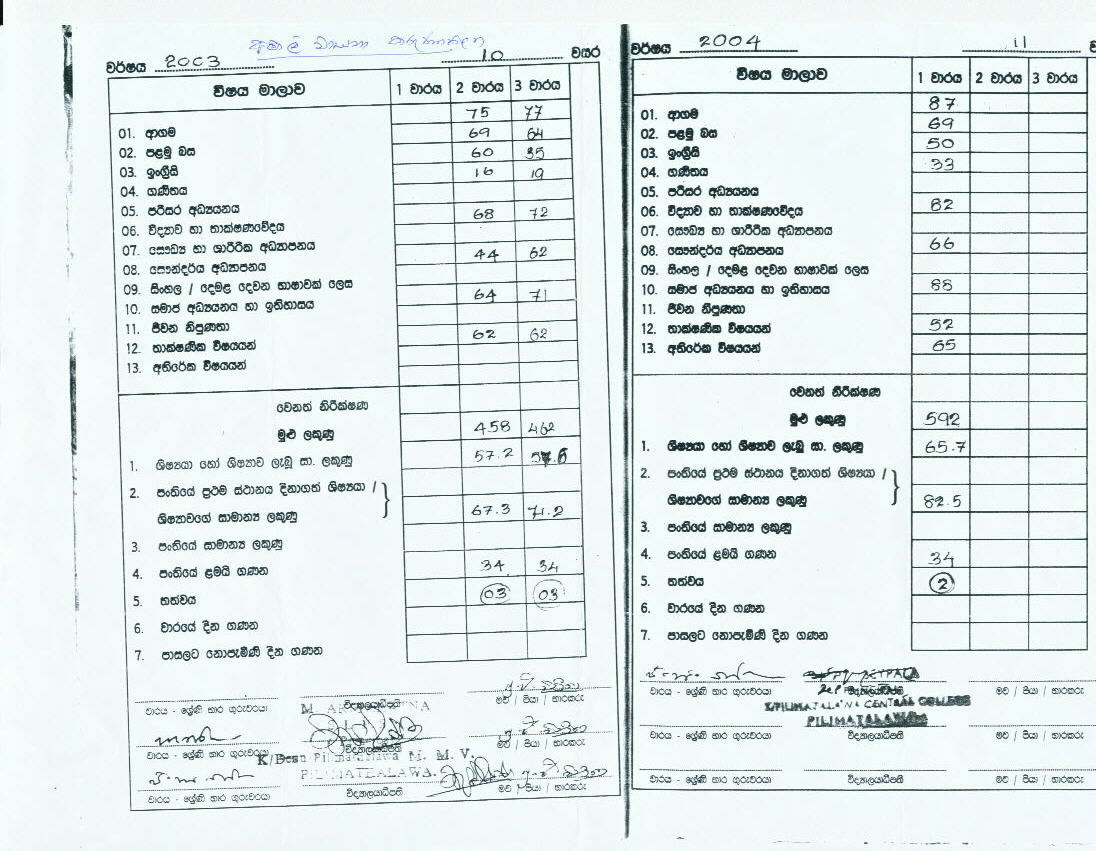 වර්ෂය 2003 10 වසර
විෂය මාලාව 1 වාරය 2 වාරය 3 වාරය
75 77
01. ආගම 69 64
02. පළමු බස 60 35
03. ඉංග්‍රීසි 16 19
04. ගණිතය
05. පරිසර අධ්‍යයනය 68 72
06. විද්‍යාව හා තාක්ෂණවේදය
07. සෞඛ්‍ය හා ශාරීරික අධ්‍යාපනය 44 62
08. සෞන්දර්ය අධ්‍යාපනය
09. සිංහල / දෙමළ දෙවන භාෂාවක් ලෙස 64 71
10. සමාජ අධ්‍යයනය හා ඉතිහාසය
11. ජීවන නිපුණතා 62 62
12. තාක්ෂණික විෂයයන්
13. අතිරේක විෂයයන්
වෙනත් නිරීක්ෂණ
මුළු ලකුණු 458 462
1. ශිෂ්‍යයා හෝ ශිෂ්‍යාව ලැබූ සා. ලකුණු 57.2
2. පංතියේ ප්‍රථම ස්ථානය දිනාගත් ශිෂ්‍යයා /
ශිෂ්‍යාවගේ සාමාන්‍ය ලකුණු 67.3 71.2
3. පංතියේ සාමාන්‍ය ලකුණු
4. පංතියේ ළමයි ගණන 34 34
5. තත්වය 03 03
6. වාරයේ දින ගණන
7. පාසලට නොපැමිණි දින ගණන
වාරය - ශ්‍රේණි භාර ගුරුවරයා විද්‍යාලයාධිපති මව / පියා / භාරකරු
වාරය - ශ්‍රේණි භාර ගුරුවරයා විද්‍යාලයාධිපති මව / පියා / භාරකරු
M. M. V.
වාරය - ශ්‍රේණි භාර ගුරුවරයා විද්‍යාලයාධිපති මව / පියා / භාරකරු
වර්ෂය 2004 11
විෂය මාලාව 1 වාරය 2 වාරය 3 වාරය
01. ආගම 87
02. පළමු බස 69
03. ඉංග්‍රීසි 50
04. ගණිතය 33
05. පරිසර අධ්‍යයනය
06. විද්‍යාව හා තාක්ෂණවේදය 82
07. සෞඛ්‍ය හා ශාරීරික අධ්‍යාපනය
08. සෞන්දර්ය අධ්‍යාපනය 66
09. සිංහල / දෙමළ දෙවන භාෂාවක් ලෙස
10. සමාජ අධ්‍යයනය හා ඉතිහාසය 88
11. ජීවන නිපුණතා
12. තාක්ෂණික විෂයයන් 52
13. අතිරේක විෂයයන් 65
වෙනත් නිරීක්ෂණ
මුළු ලකුණු 592
1. ශිෂ්‍යයා හෝ ශිෂ්‍යාව ලැබූ සා. ලකුණු 65.7
2. පංතියේ ප්‍රථම ස්ථානය දිනාගත් ශිෂ්‍යයා /
ශිෂ්‍යාවගේ සාමාන්‍ය ලකුණු 82.5
3. පංතියේ සාමාන්‍ය ලකුණු
4. පංතියේ ළමයි ගණන 34
5. තත්වය 2
6. වාරයේ දින ගණන
7. පාසලට නොපැමිණි දින ගණන
වාරය - ශ්‍රේණි භාර ගුරුවරයා මව / පියා / භාරකරු
CENTRAL COLLEGE
වාරය - ශ්‍රේණි භාර ගුරුවරයා විද්‍යාලයාධිපති මව / පියා / භාරකරු
වාරය - ශ්‍රේණි භාර ගුරුවරයා විද්‍යාලයාධිපති මව / පියා / භාරකරු